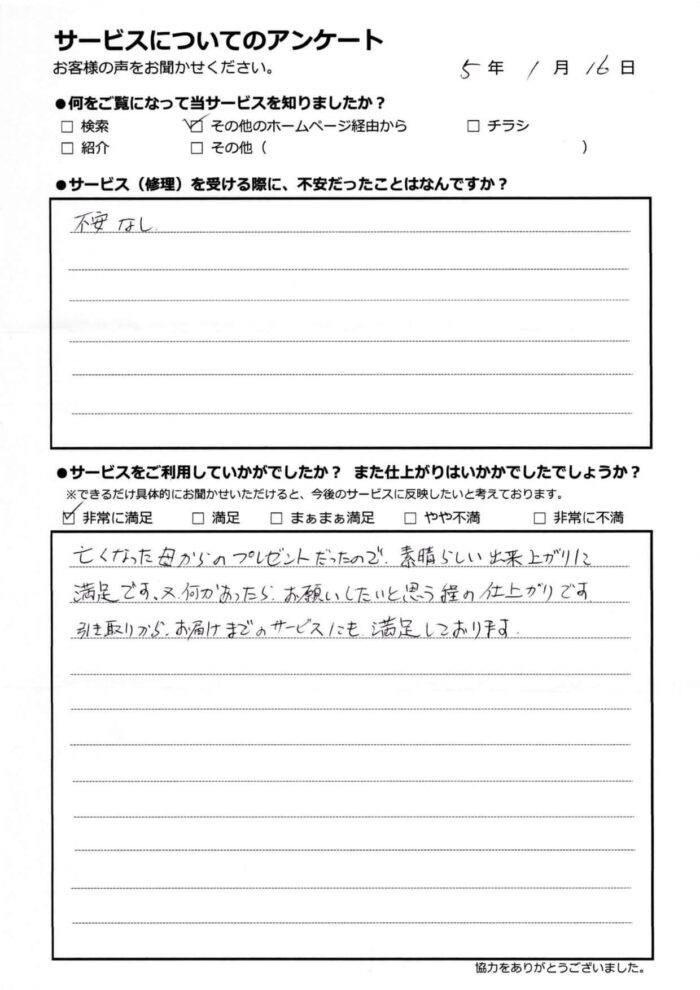 サービスについてのアンケート
お客様の声をお聞かせください。
5 年 1 月 16 日
●何をご覧になって当サービスを知りましたか？
□ 検索 ☑ その他のホームページ経由から □ チラシ
□ 紹介 □ その他（ ）
●サービス（修理）を受ける際に、不安だったことはなんですか？
不安なし.
●サービスをご利用していかがでしたか？ また仕上がりはいかかでしたでしょうか？
※できるだけ具体的にお聞かせいただけると、今後のサービスに反映したいと考えております。
☑ 非常に満足 □ 満足 □ まぁまぁ満足 □ やや不満 □ 非常に不満
亡くなった母からのプレゼントだったので、素晴らしい出来上がりに
満足です、又、何かあったら、お願いしたいと思う程の仕上がりです
引き取りから、お届けまでのサービスにも、満足しております.
協力をありがとうございました。